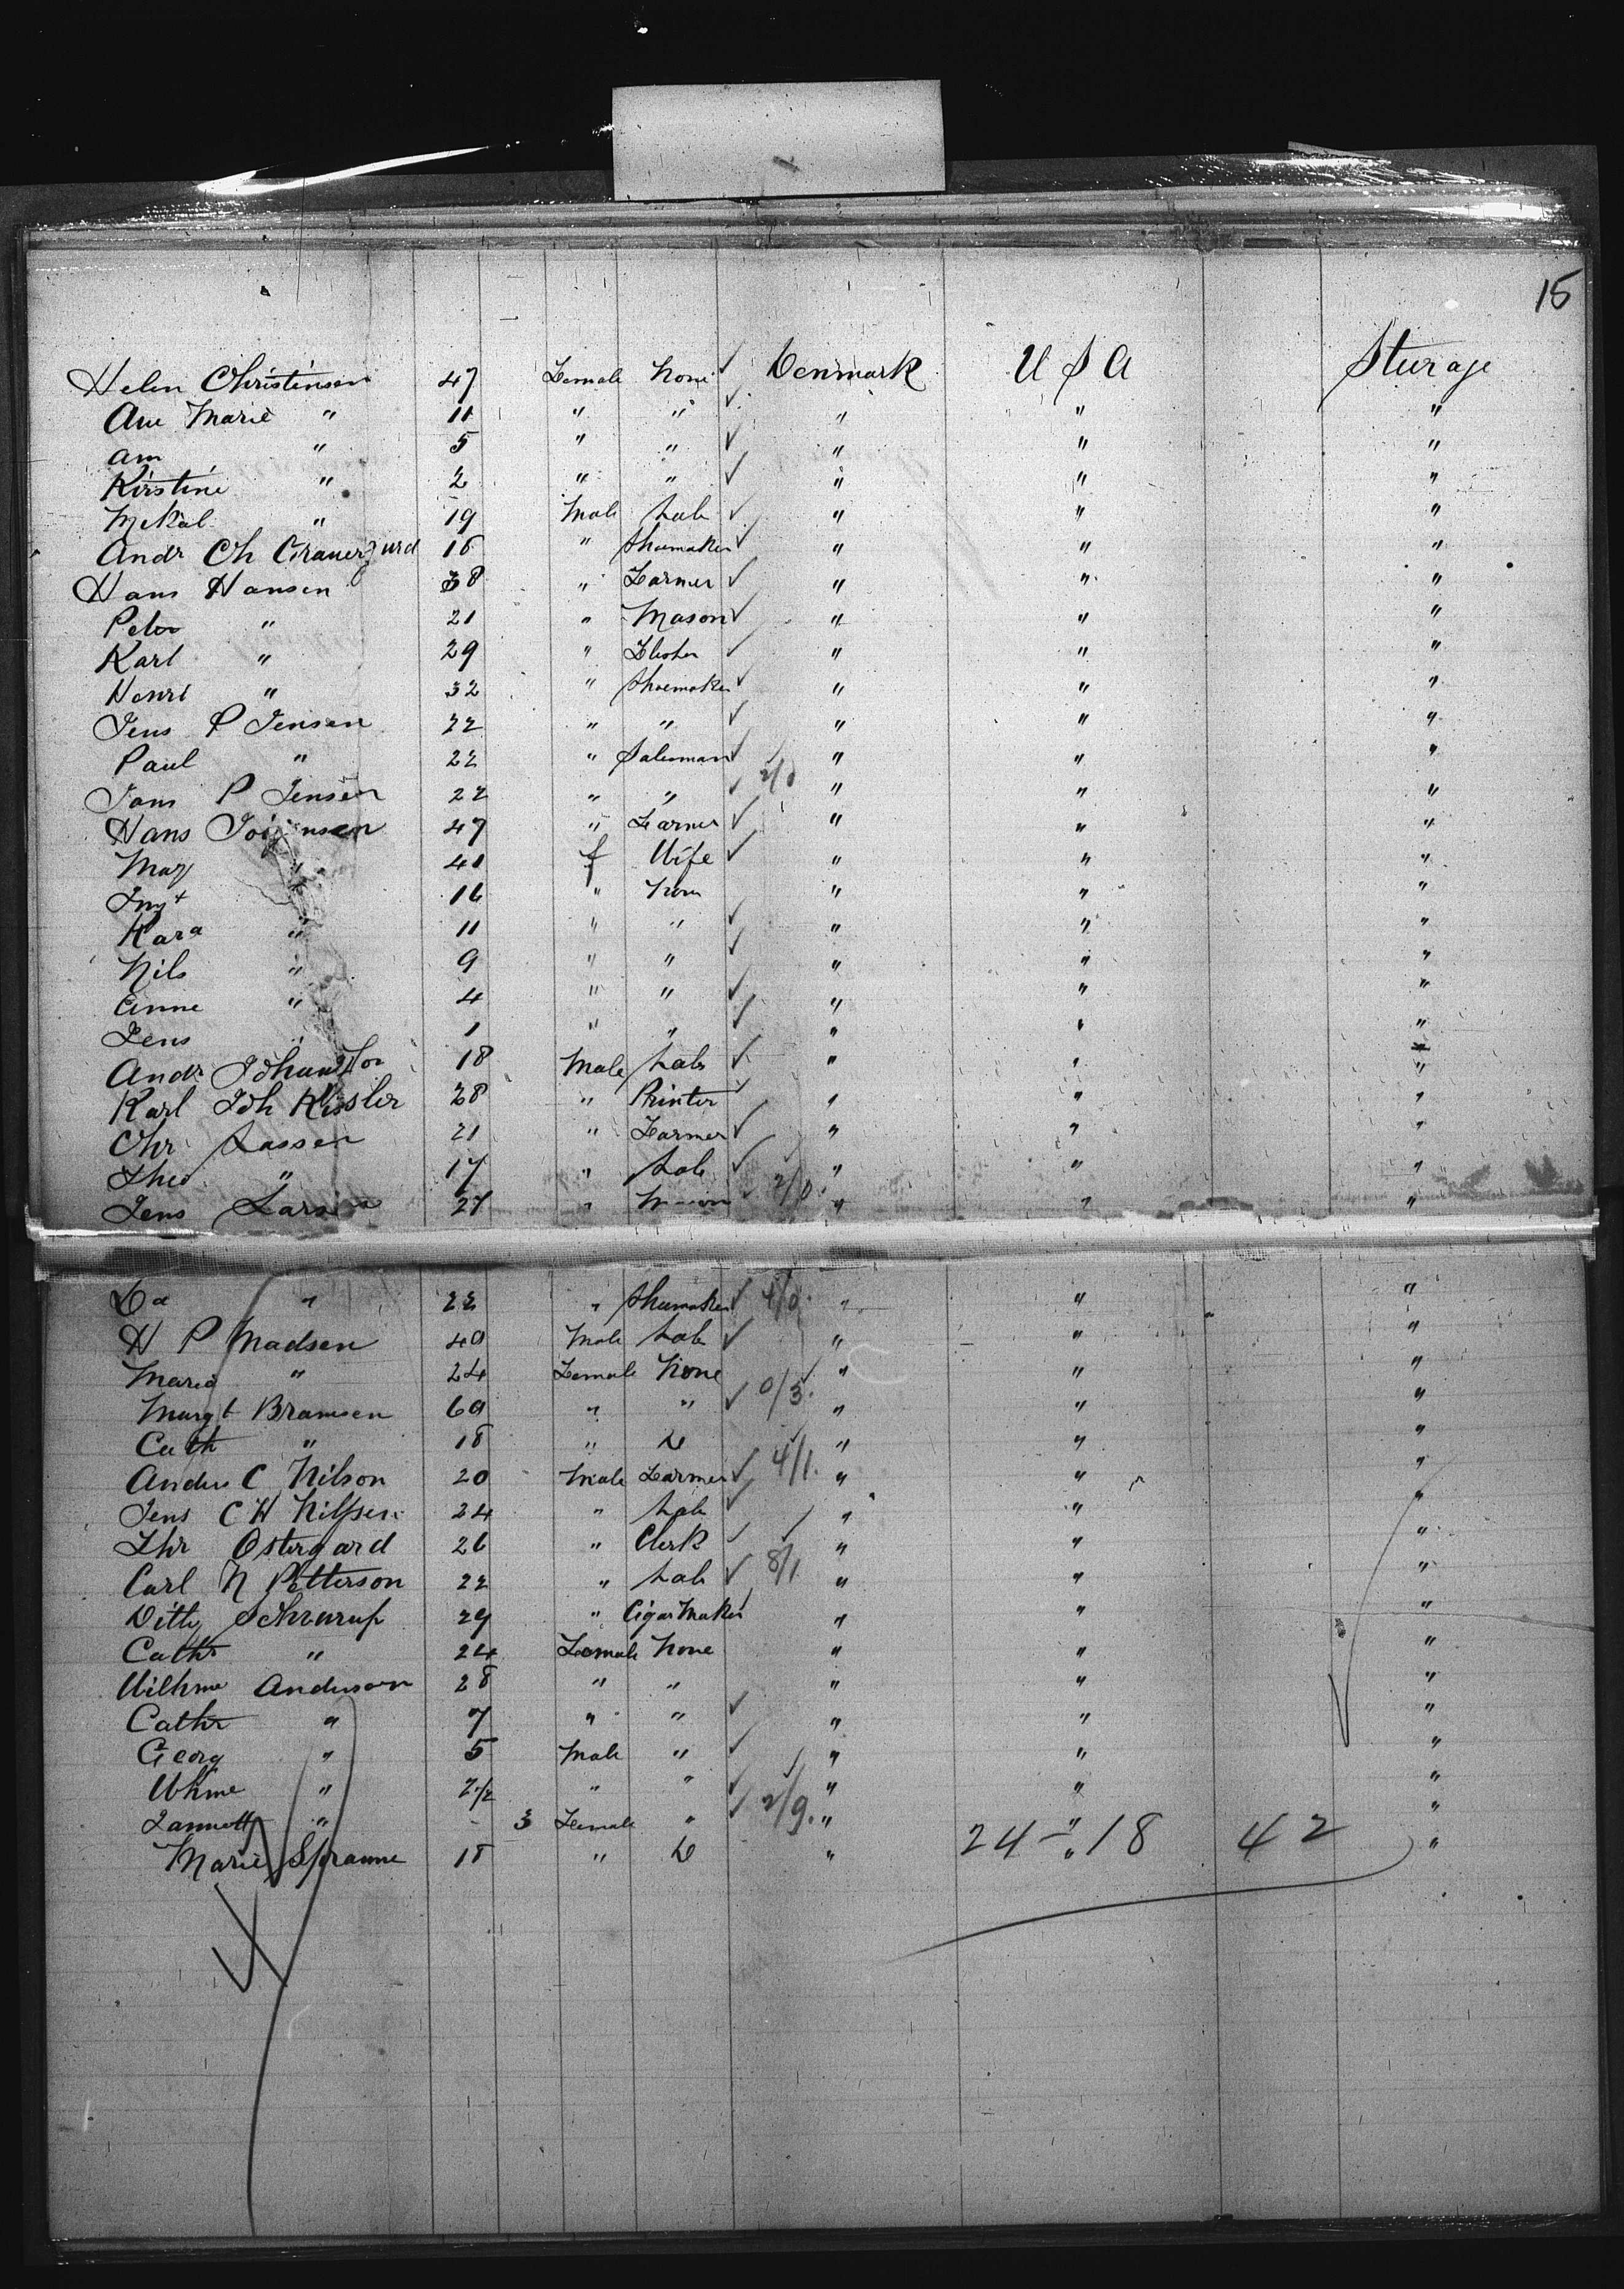 15
Helen Christensen 47 Female None ✓ Denmark U S A Steerage
Ane Marie " 11 " " ✓ " " "
am " 5 " " ✓ " " "
Kirstine " 2 " " ✓ " " "
Mekal " 19 Male Lab ✓ " " "
Andr Ch 16 " Shoemaker ✓ " " "
Hans Hansen 38 " Farmer ✓ " " "
Peter " 21 " Mason ✓ " " "
Karl " 29 " ✓ " " "
Henri " 32 " Shoemaker ✓ " " "
Jens P Jensen 22 " " ✓ " " "
Paul " 22 " Salesman ✓ " " "
Jans P Jensen 22 " " ✓ 2/0 " " "
Hans Jorgensen 47 " Farmer ✓ " " "
Mary " 41 f Wife ✓ " " "
Ingt " 16 " None " " "
Kara " 11 " " ✓ " " "
Nils " 9 " " ✓ " " "
Anne " 4 " " ✓ " " "
Jens " 1 " " ✓ " " "
Andr 18 Male Lab ✓ " " "
Karl Joh Kissler 28 " Printer ✓ " " "
Chr Lassen 21 " Farmer ✓ " " "
Theo " 17 " Lab ✓ " " "
Jens Larsen 27 " Mason ✓ 2/0 " " "
Do " 22 " Shoemaker ✓ 4/0 " " "
H P Madsen 40 Male Lab ✓ " " "
Maria " 24 Female None ✓ " " "
Margt Bramsen 60 " " ✓ 0/3. " " "
Cath " 18 " Do ✓ " " "
Anders C Nilson 20 Male Farmer ✓ 4/1. " " "
Jens C H Nilssen 24 " Lab ✓ " " "
Thr Ostergard 26 " Clerk ✓ ✓ " " "
Carl N Petterson 22 " Lab ✓ 8/1 " " "
Ditty 29 " Cigar Maker " " "
Cathr " 24 Female None " " "
Wilhme Anderson 28 " " " " "
Cathr " 7 " " ✓ " " "
Georg " 5 Male " ✓ " " "
Whme " 2 1/2 " " ✓ ✓ " " "
" - 3 Female " ✓ 2/9. " " "
Marie 18 " Do " 24 - " 18 42 "